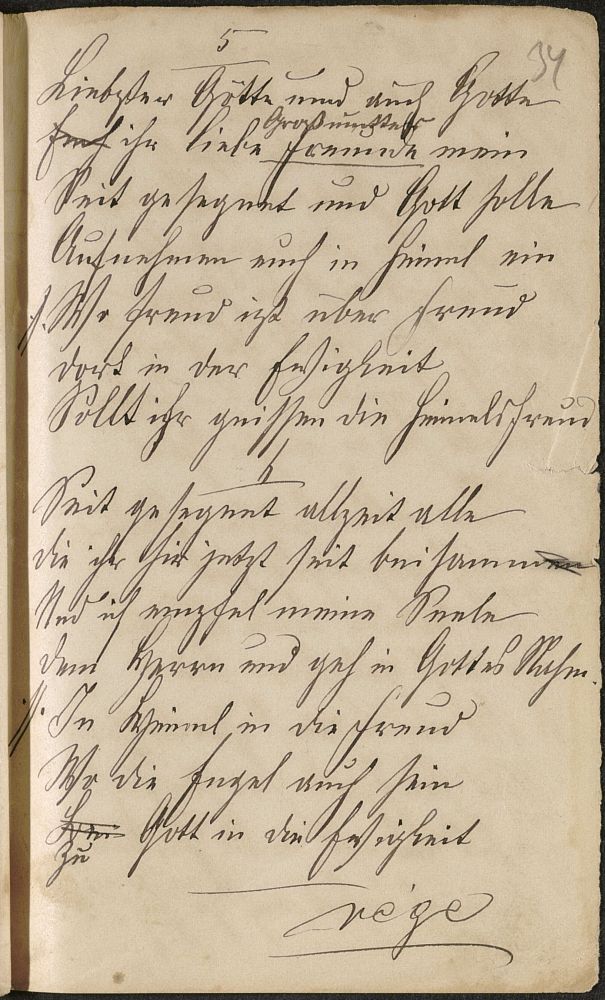 5
34
Liebster Götte und auch Gotte
Auch ihr liebe Großmutter Freunde mein
Seit gesegnet und Gott solle
Aufnehmen euch in Himel ein
/: Wo Freud ist über Freud
dort in der Ewigkeit
Sollt ihr geissen die Himelsfreud
6
Seit gesegnet allzeit alle
die ihr hir jetzt seit beisammen
Und ich empfel meine Seele
dem Herrn und geh in Gottes Nahm.
/: In Himel in die Freud
Wo die Engel auch sein
Zu Gott in die Ewigkeit
vége